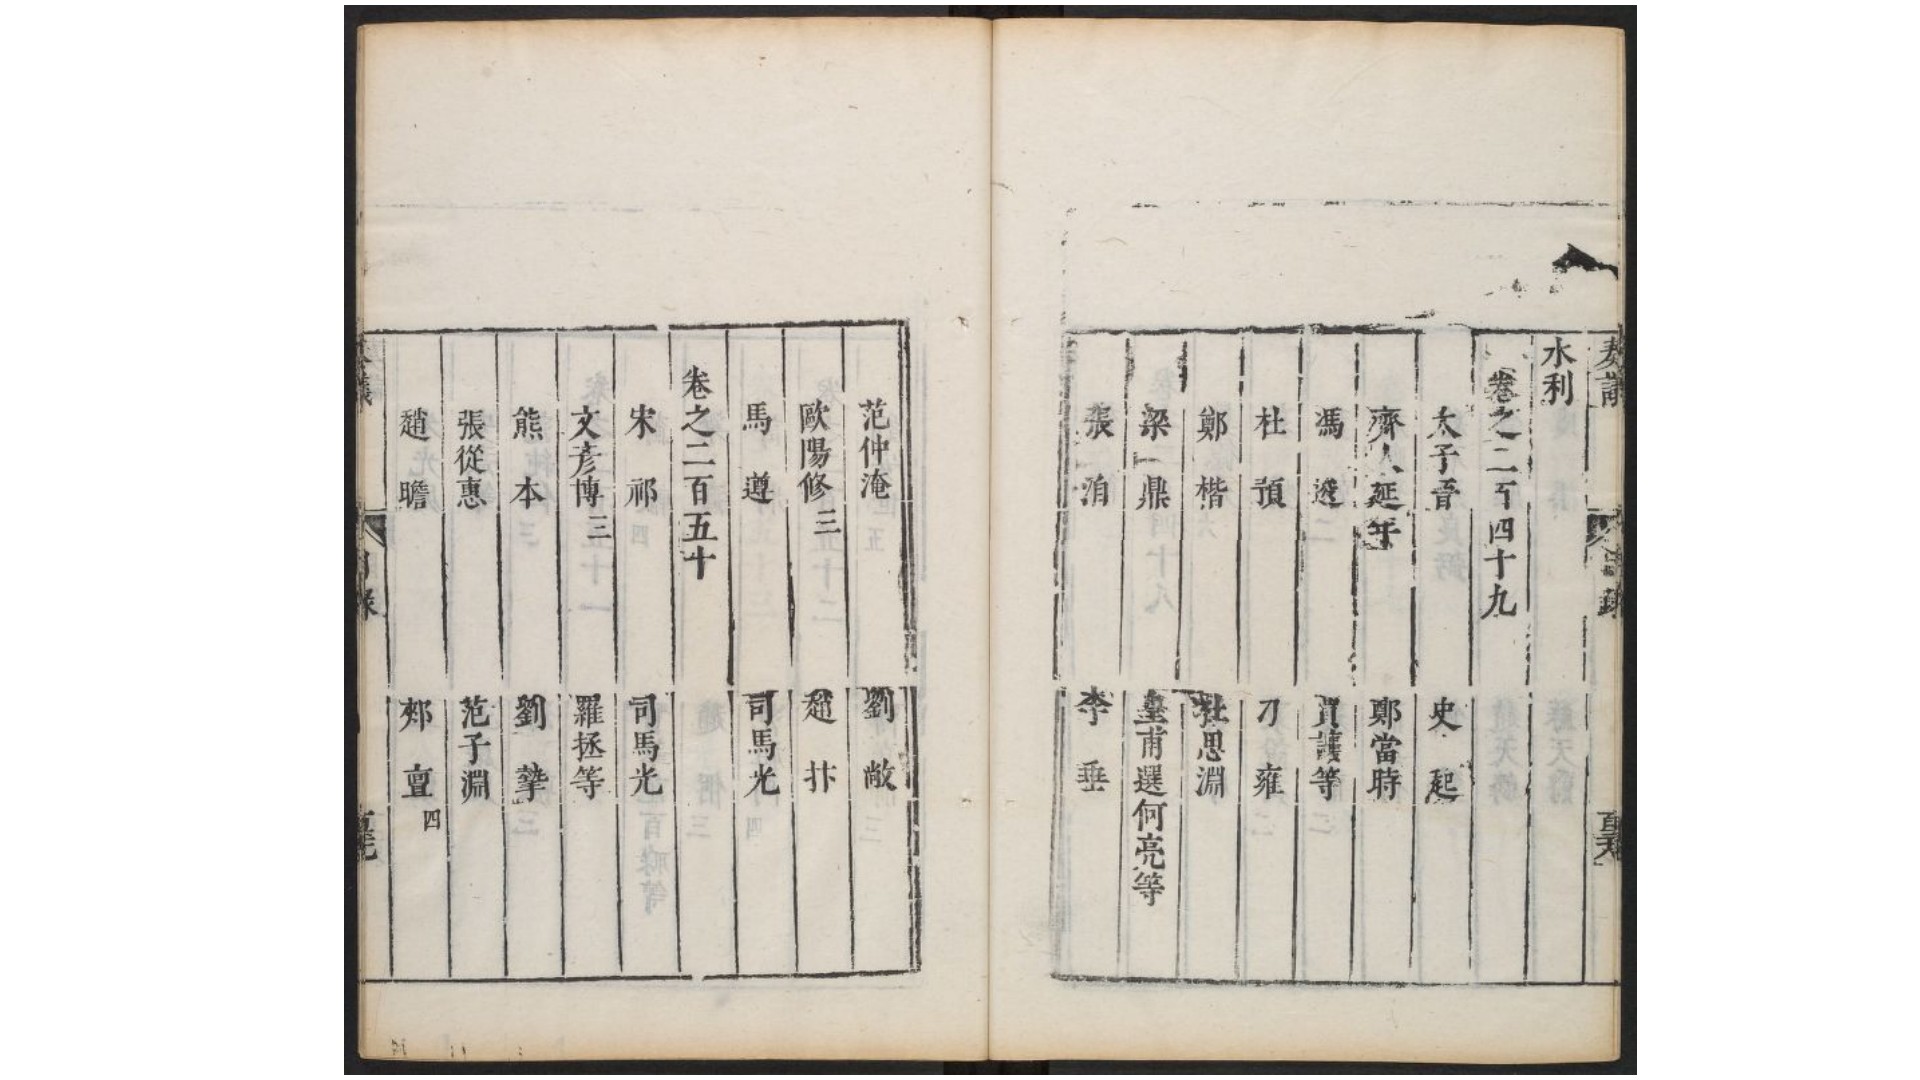 奏議
水利
卷之二百四十九
太子晉 史起
齊人延年 鄭當時
馮逡 賈讓等
杜預 刁雍
鄭楷 杜思淵
梁鼎 皇甫選何亮等
張洎 李垂
范仲淹 劉敞
歐陽修三 趙抃
馬遵 司馬光
卷之二百五十
宋祁 司馬光
文彥博三 羅拯等
熊本 劉摯
張從惠 范子淵
趙瞻 郟亶四
奏議 目錄